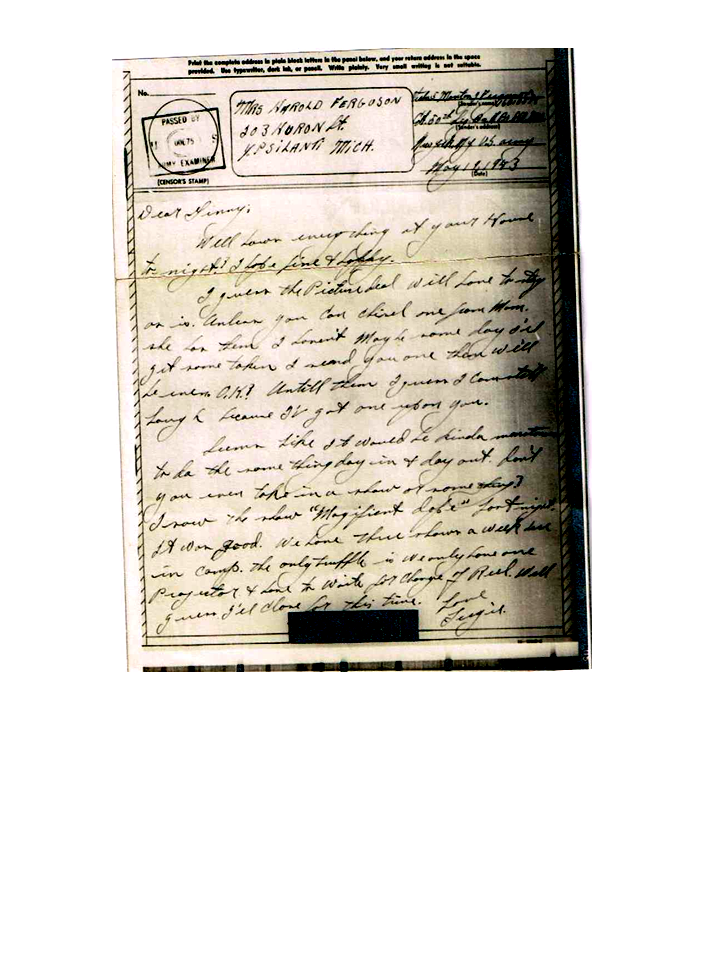 Print the complete address in plain block letters in the panel below, and your return address in the space
provided. Use typewriter, dark ink, or pencil. Write plainly. Very small writing is not suitable.
No.
PASSED BY
ARMY EXAMINER
(CENSOR'S STAMP)
MRS HAROLD FERGUSON
203 HURON St.
YPSILANTI MICH.
(Sender's name)
(Sender's address)
U.S. Army
May 1943
(Date)
Dear Ginny;
Well how everything at your House
to night? I
I guess the Picture deal will have to
on is. Unless you can chisel one from Mom.
she has them I haven't Maybe some day I'll
get some taken I send you one then will
be even O.K? Untill then I guess I
laugh because I've got one upon you.
Seems like it would be kinda
to do the same thing day in & day out. Don't
you even take in a show or some thing?
I saw the show "Magifient dobe" last night.
It was good. We have three shows a week
in camp. the only truffle is we only have one
Projector & have to waite for change of Reel. Well
guess I'll close for this time.
Love